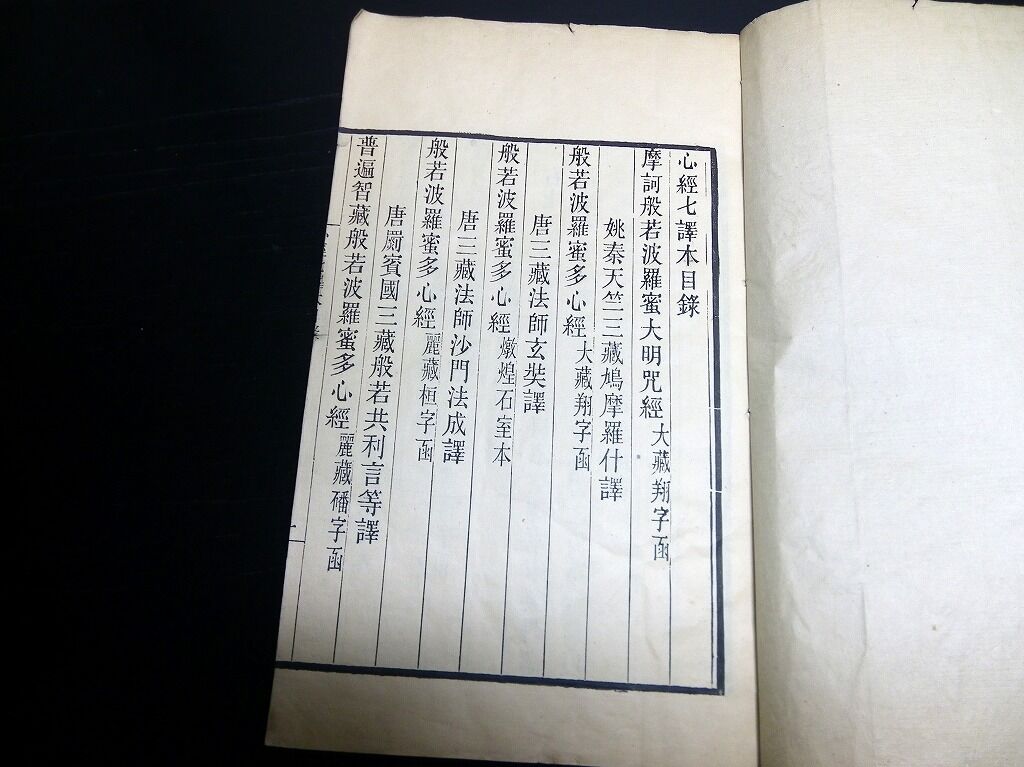 心經七譯本目錄
摩訶般若波羅蜜大明咒經 大藏翔字函
姚秦天竺三藏鳩摩羅什譯
般若波羅蜜多心經 大藏翔字函
唐三藏法師玄奘譯
般若波羅蜜多心經 燉煌石室本
唐三藏法師沙門法成譯
般若波羅蜜多心經 麗藏桓字函
唐罽賓國三藏般若共利言等譯
普遍智藏般若波羅蜜多心經 麗藏磻字函
一